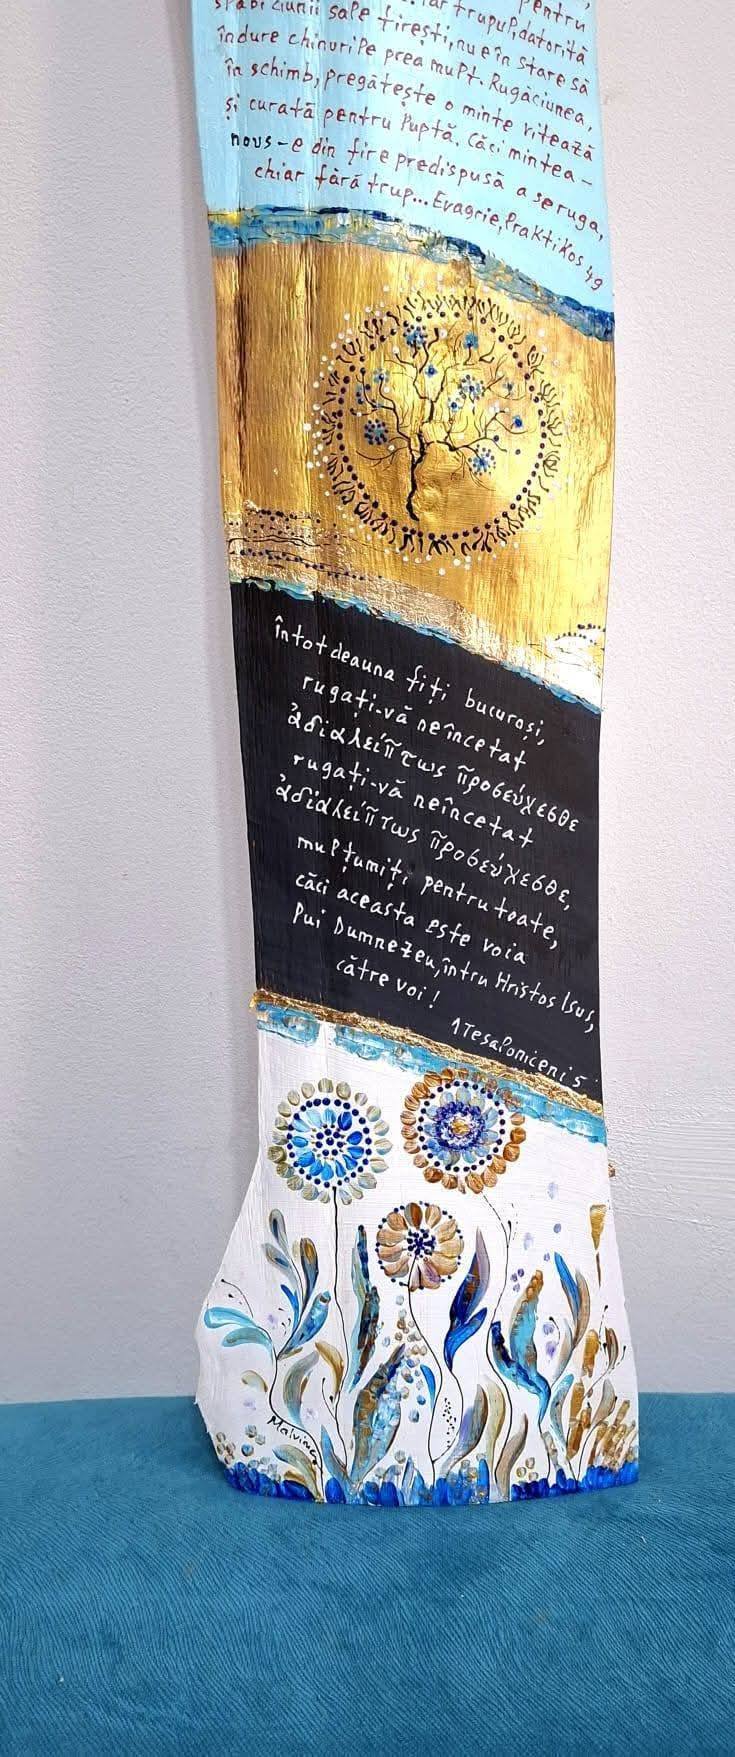 pentru
slăbiciunii sale firești, nu e în stare să
iar trupul, datorită
îndure chinurile prea mult. Rugăciunea,
în schimb, pregătește o minte vitează
și curată pentru luptă. Căci mintea -
nous - e din fire predispusă a se ruga,
chiar fără trup... Evagrie, Praktikos 49
întotdeauna fiți bucuroși,
rugați-vă neîncetat
ἀδιαλείπτως προσεύχεσθε
rugați-vă neîncetat
ἀδιαλείπτως προσεύχεσθε,
mulțumiți pentru toate,
căci aceasta este voia
lui Dumnezeu, întru Hristos Isus,
către voi!
1 Tesaloniceni 5
Malvina